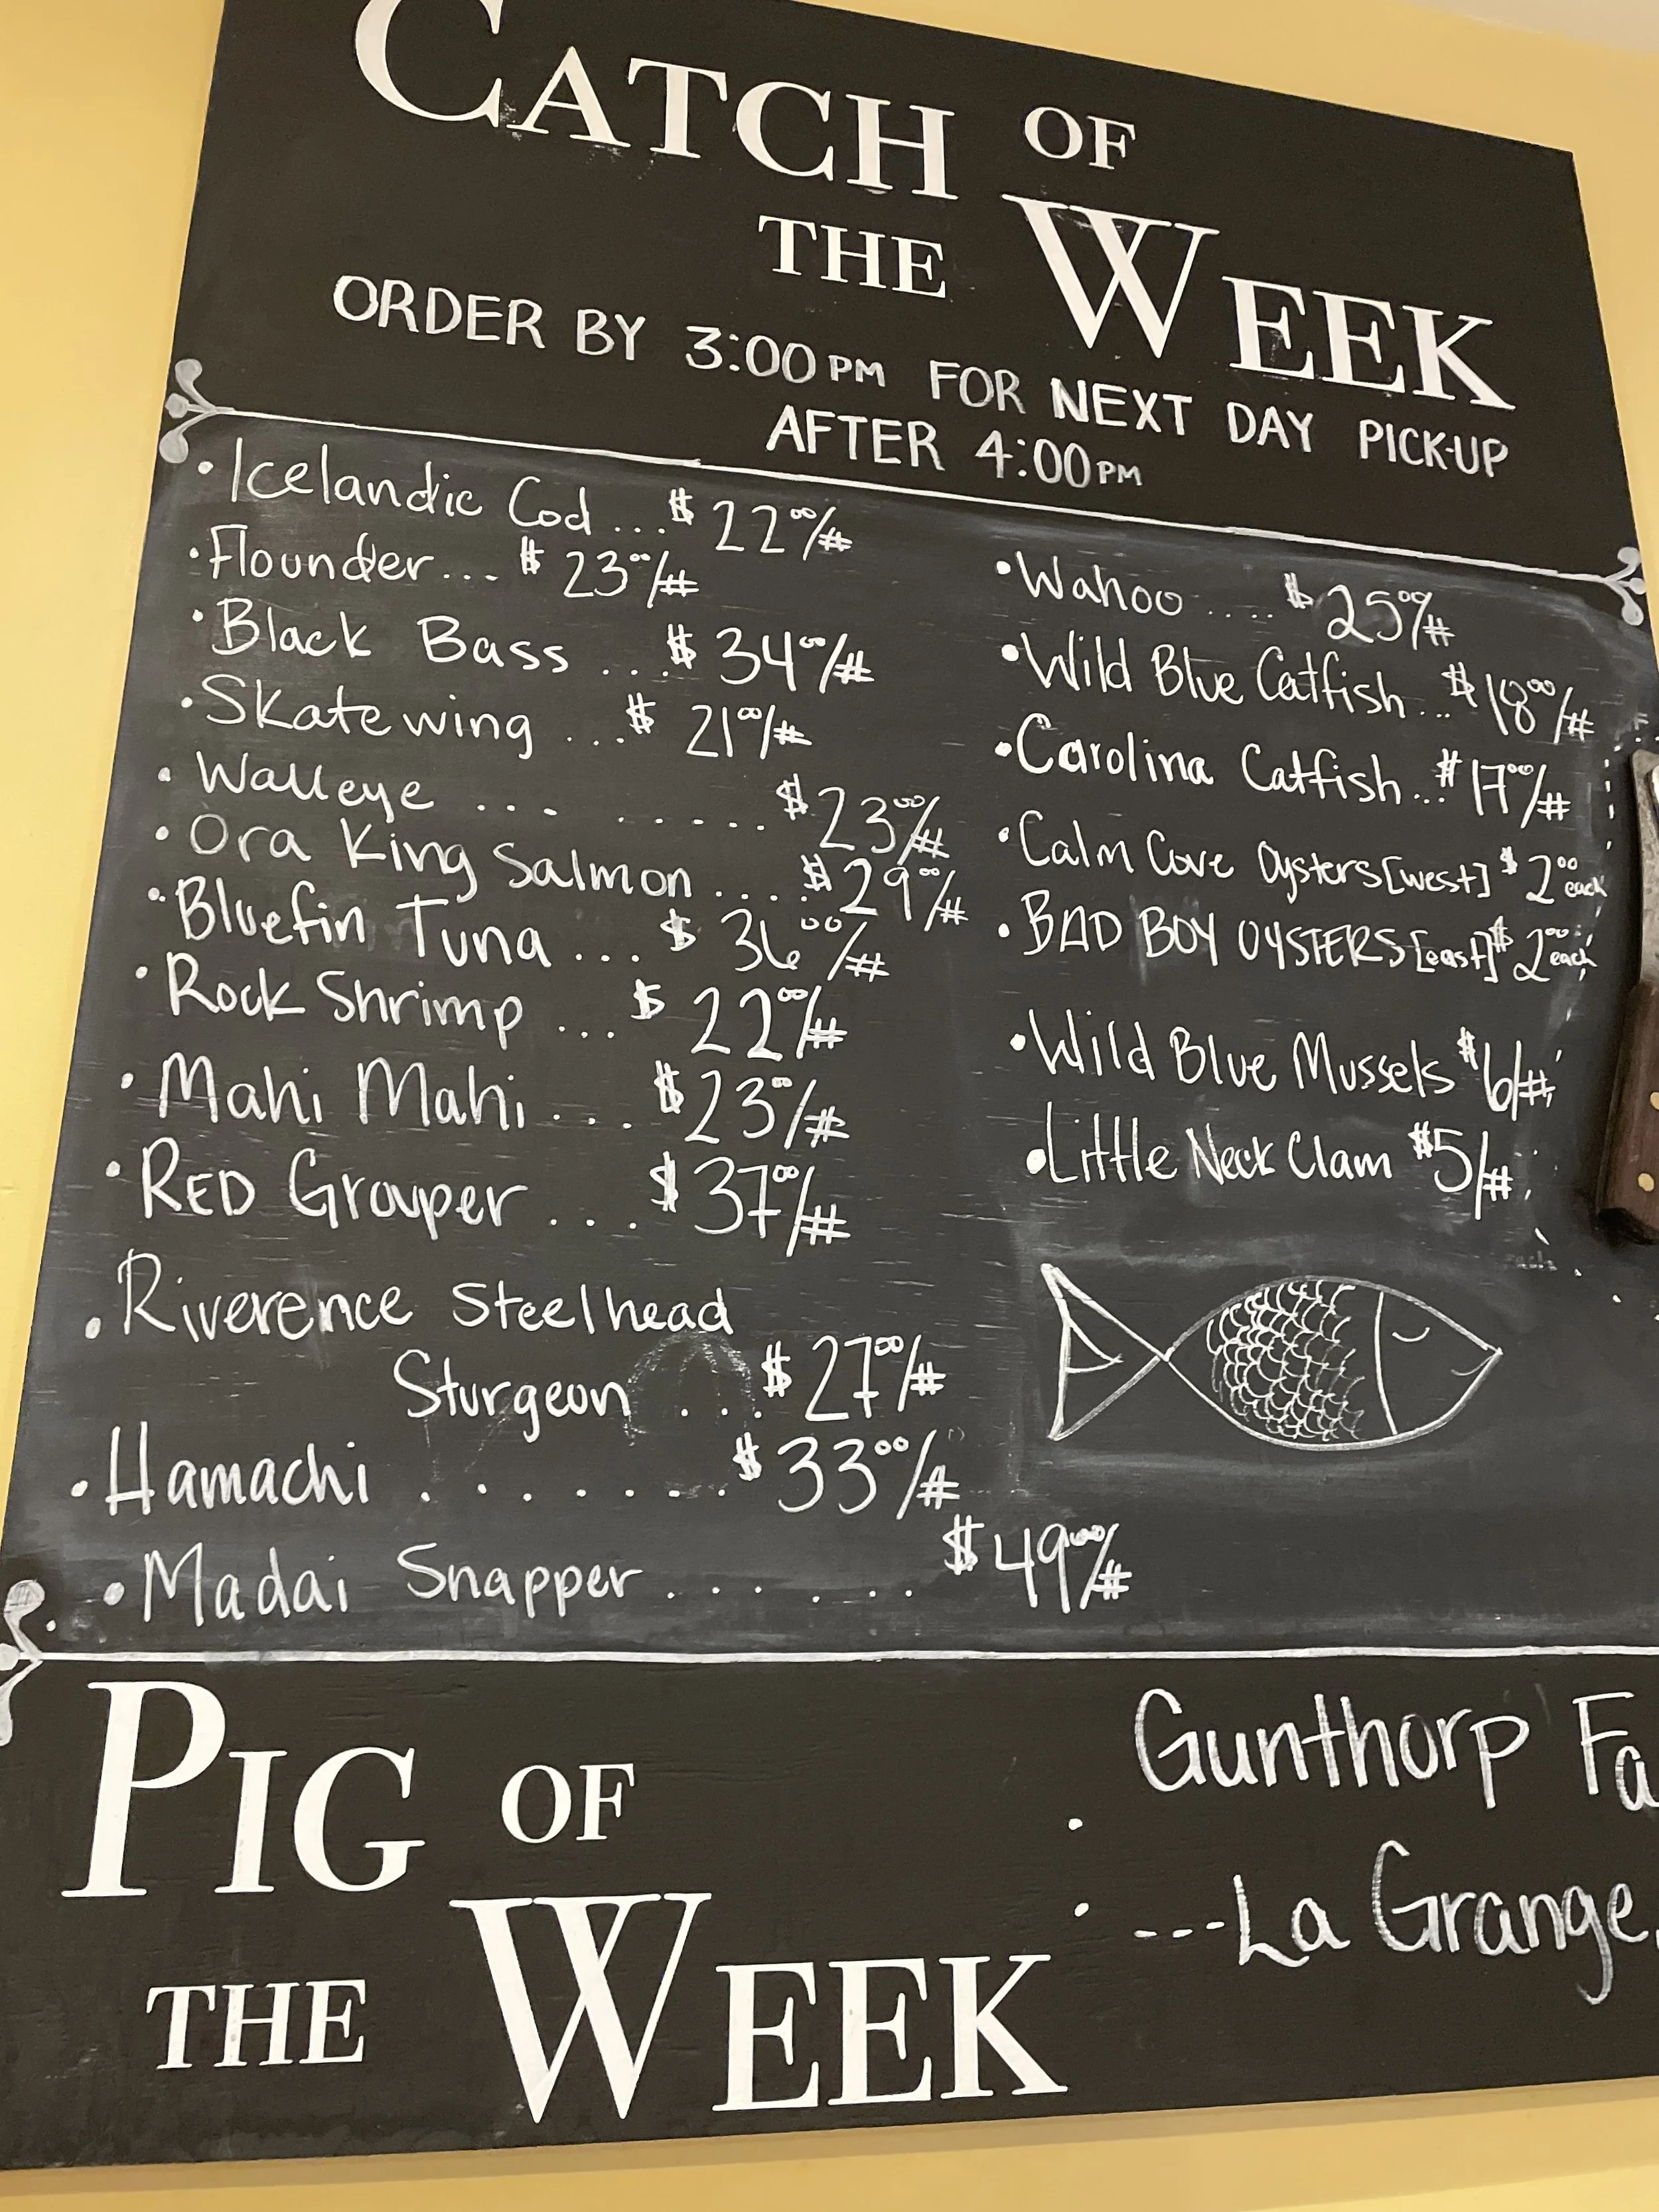 CATCH OF
THE WEEK
ORDER BY 3:00PM FOR NEXT DAY PICK-UP
AFTER 4:00PM
• Icelandic Cod ... $22⁰⁰/#
• Flounder... $23⁰⁰/#
• Black Bass ... $34⁰⁰/#
• Skate wing ... $21⁰⁰/#
• Walleye ... ..... $23⁰⁰/#
• Ora King Salmon .... $29⁰⁰/#
• Bluefin Tuna ... $36⁰⁰/#
• Rock Shrimp ... $22⁰⁰/#
• Mahi Mahi ... $23⁰⁰/#
• RED Grouper ... $37⁰⁰/#
• Riverence Steelhead
Sturgeon ... $27⁰⁰/#
• Hamachi ....... $33⁰⁰/#
• Madai Snapper ...... $49⁰⁰/#
• Wahoo .... $25⁰⁰/#
• Wild Blue Catfish... $18⁰⁰/#
• Carolina Catfish... $17⁰⁰/#
• Calm Cove Oysters [west] $2⁰⁰ each
• BAD BOY OYSTERS [east] $2⁰⁰ each
• Wild Blue Mussels $6/#
• Little Neck Clam $5/#
PIG OF
THE WEEK
• Gunthorp Fa
• ---La Grange,